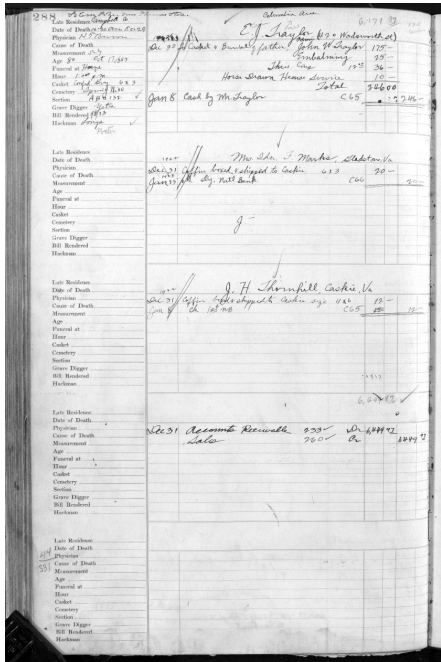 288
Columbia Ave
Late Residence
Date of Death
Physician
Cause of Death
Measurement
Age 80
Funeral at Home
Hour
Casket 6 x 3
Cemetery Spring Hill
Section
Grave Digger Yates
Bill Rendered
Hackman
E.J. Traylor
Dec 30 To Casket & Burial of father John W Traylor 175 —
Embalming 25 —
Three Cars 12 00 36 —
Horse Drawn Hearse Service 10 —
Total 246 00
Jan 8 Cash by Mr Traylor C65 246 —
Late Residence
Date of Death
Physician
Cause of Death
Measurement
Age
Funeral at
Hour
Casket
Cemetery
Section
Grave Digger
Bill Rendered
Hackman
Mrs F. Marks Gladstone, Va
Dec 31 Coffin boxed & shipped to Caskie 6 x 3 20 —
Natl Bank C66 20 —
Late Residence
Date of Death
Physician
Cause of Death
Measurement
Age
Funeral at
Hour
Casket
Cemetery
Section
Grave Digger
Bill Rendered
Hackman
J. H Thornhill Caskie, Va
Dec 31 Coffin shipped to Caskie size 12 —
Jan 8 Ck 1st NB C65 12 —
Late Residence
Date of Death
Physician
Cause of Death
Measurement
Age
Funeral at
Hour
Casket
Cemetery
Section
Grave Digger
Bill Rendered
Hackman
Dec 31 Accounts Receivable 233 ✓ Dr
Sales 260 ✓ Cr
Late Residence
Date of Death
Physician
Cause of Death
Measurement
Age
Funeral at
Hour
Casket
Cemetery
Section
Grave Digger
Bill Rendered
Hackman